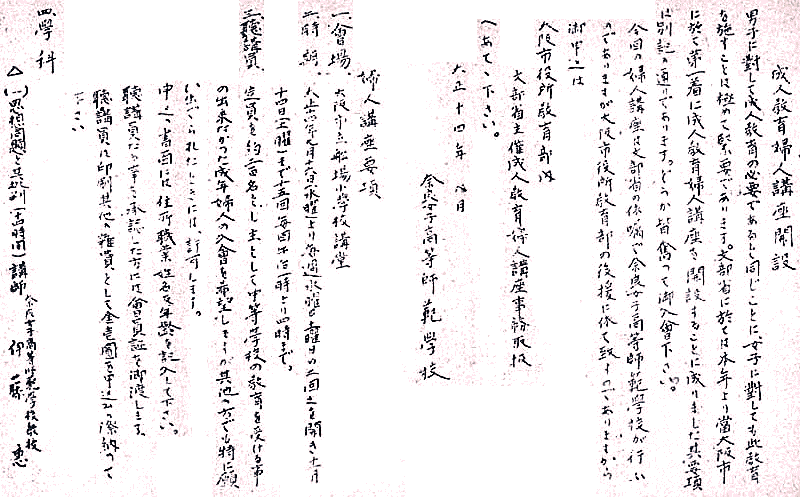 成人教育婦人講座開設
男子に對して成人教育の必要であると同じことに女子に對しても此教育
を施すことは極めて緊要であります。文部省に於ては本年より當大阪市
に於て第一着に成人教育婦人講座を開設することに成りました其要項
は別記の通りであります。どうか皆奮つて御入會下さい。
今回の婦人講座は文部省の依囑で奈良女子高等師範學校が行ふ
のでありますが大阪市役所教育部の後援に依て致すのでありますから
御申込は
大阪市役所教育部内
文部省主催成人教育婦人講座事務取扱
へあてゝ下さい。
大正十四年 八月
奈良女子高等師範學校
婦人講座要項
一、會場 大阪市立船場小學校講堂
二、時期 大正十四年九月十六日(水曜)より毎週水曜土曜日の二回之を開き十月
十四日(水曜)まで十五回毎回午后一時より四時まで。
三、聽講員 定員を約二百名とし主として中等學校の教育を受ける事
の出來なかつた成年婦人の入會を希望しますが其他の方でも特に願
ひ出でられたときには許可します。
申込書面には住所職業姓名及年齡を記入して下さい。
聽講員たる事を承認した方には會員証を御渡しします。
聽講員は印刷其他の雜費として金壱圓を申込の際納めて
下さい
四、學科
△(一)思想問題と其批判(十五時間)講師 奈良女子高等師範學校教授 伊藤 惠